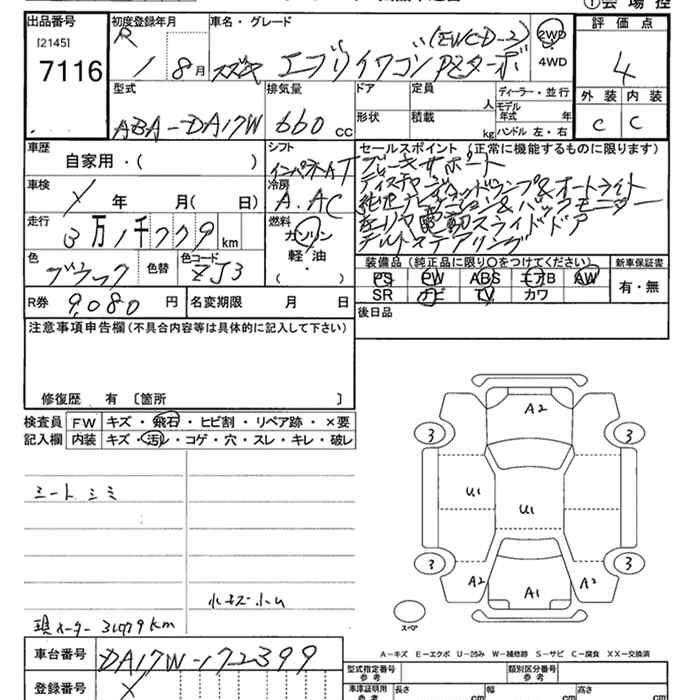 ①会場控
出品番号 初度登録年月 車名・グレード 評価点
[2145] R (EWC-D-2) 2WD
7116 1 8月 スズキ エブリイワゴン PZターボ 4WD 4
型式 排気量 ドア 定員 ディーラー・並行 外装 内装
人 モデル年式 年
ABA-DA17W 660 CC 形状 積載 kg ハンドル 左・右 C C
車歴 シフト セールスポイント(正常に機能するものに限ります)
自家用・( ) インパネAT ブレーキサポート
車検 冷房 ディスチャージヘッドランプ&オートライト
X 年 月( 日) A.AC 純正ナビゲーション&バックモニター
走行 燃料 左リヤ電動スライドドア
3万1千779km ガソリン チルトステアリング
軽・油
色 色替 色コード ・( )
ブラック ZJ3
装備品(純正品に限り〇をつけてください) 新車保証書
PS PW ABS エアB AW 有・無
SR ナビ TV カワ
R券 9,080 円 名変期限 月 日
後日品
注意事項申告欄(不具合内容等は具体的に記入して下さい)
修復歴 有 〔箇所 〕
検査員 FW キズ・飛石・ヒビ割・リペア跡・×要
記入欄 内装 キズ・汚レ・コゲ・穴・スレ・キレ・破レ
A2
3 3
シートシミ
U1 U1
3 3
A2 A1 A2
小キズ小凹
スペア
現メーター 31779km
A-キズ E-エクボ U-凹み W-補修跡 S-サビ C-腐食 XX-交換済
車台番号 DA17W-172399
型式指定番号 参考 類別区分番号 参考
登録番号 X
車庫証明用 参考 長さ cm 幅 cm 高さ cm